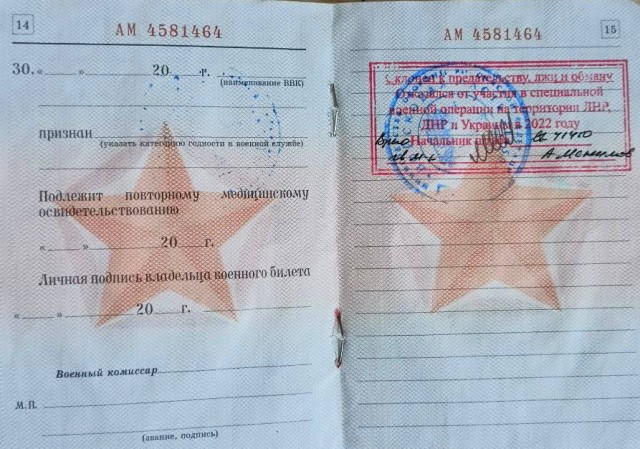 14
АМ 4581464
30. « » 20 г.
(наименование ВВК)
признан
(указать категорию годности к военной службе)
Подлежит повторному медицинскому
освидетельствованию
« » 20 г.
Личная подпись владельца военного билета
« » 20 г.
Военный комиссар
М.П.
(звание, подпись)
АМ 4581464
15
Склонен к предательству, лжи и обману
Отказался от участия в специальной
военной операции на территории ЛНР,
ДНР и Украины в 2022 году
Начальник